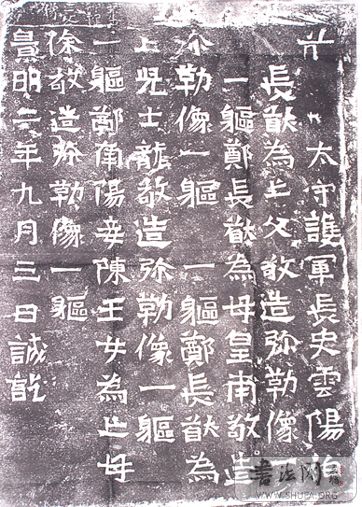 太守護軍長史雲陽伯
長猷為亡父敬造弥勒像
一軀鄭長猷為母皇甫敬造
弥勒像一軀 一軀鄭長猷為
亡兒士龍敬造弥勒像一軀
一軀鄭南陽妾陳王女為亡母
徐敬造弥勒像一軀
景明二年九月三日誠訖
书法网
WWW.SHUFA.ORG